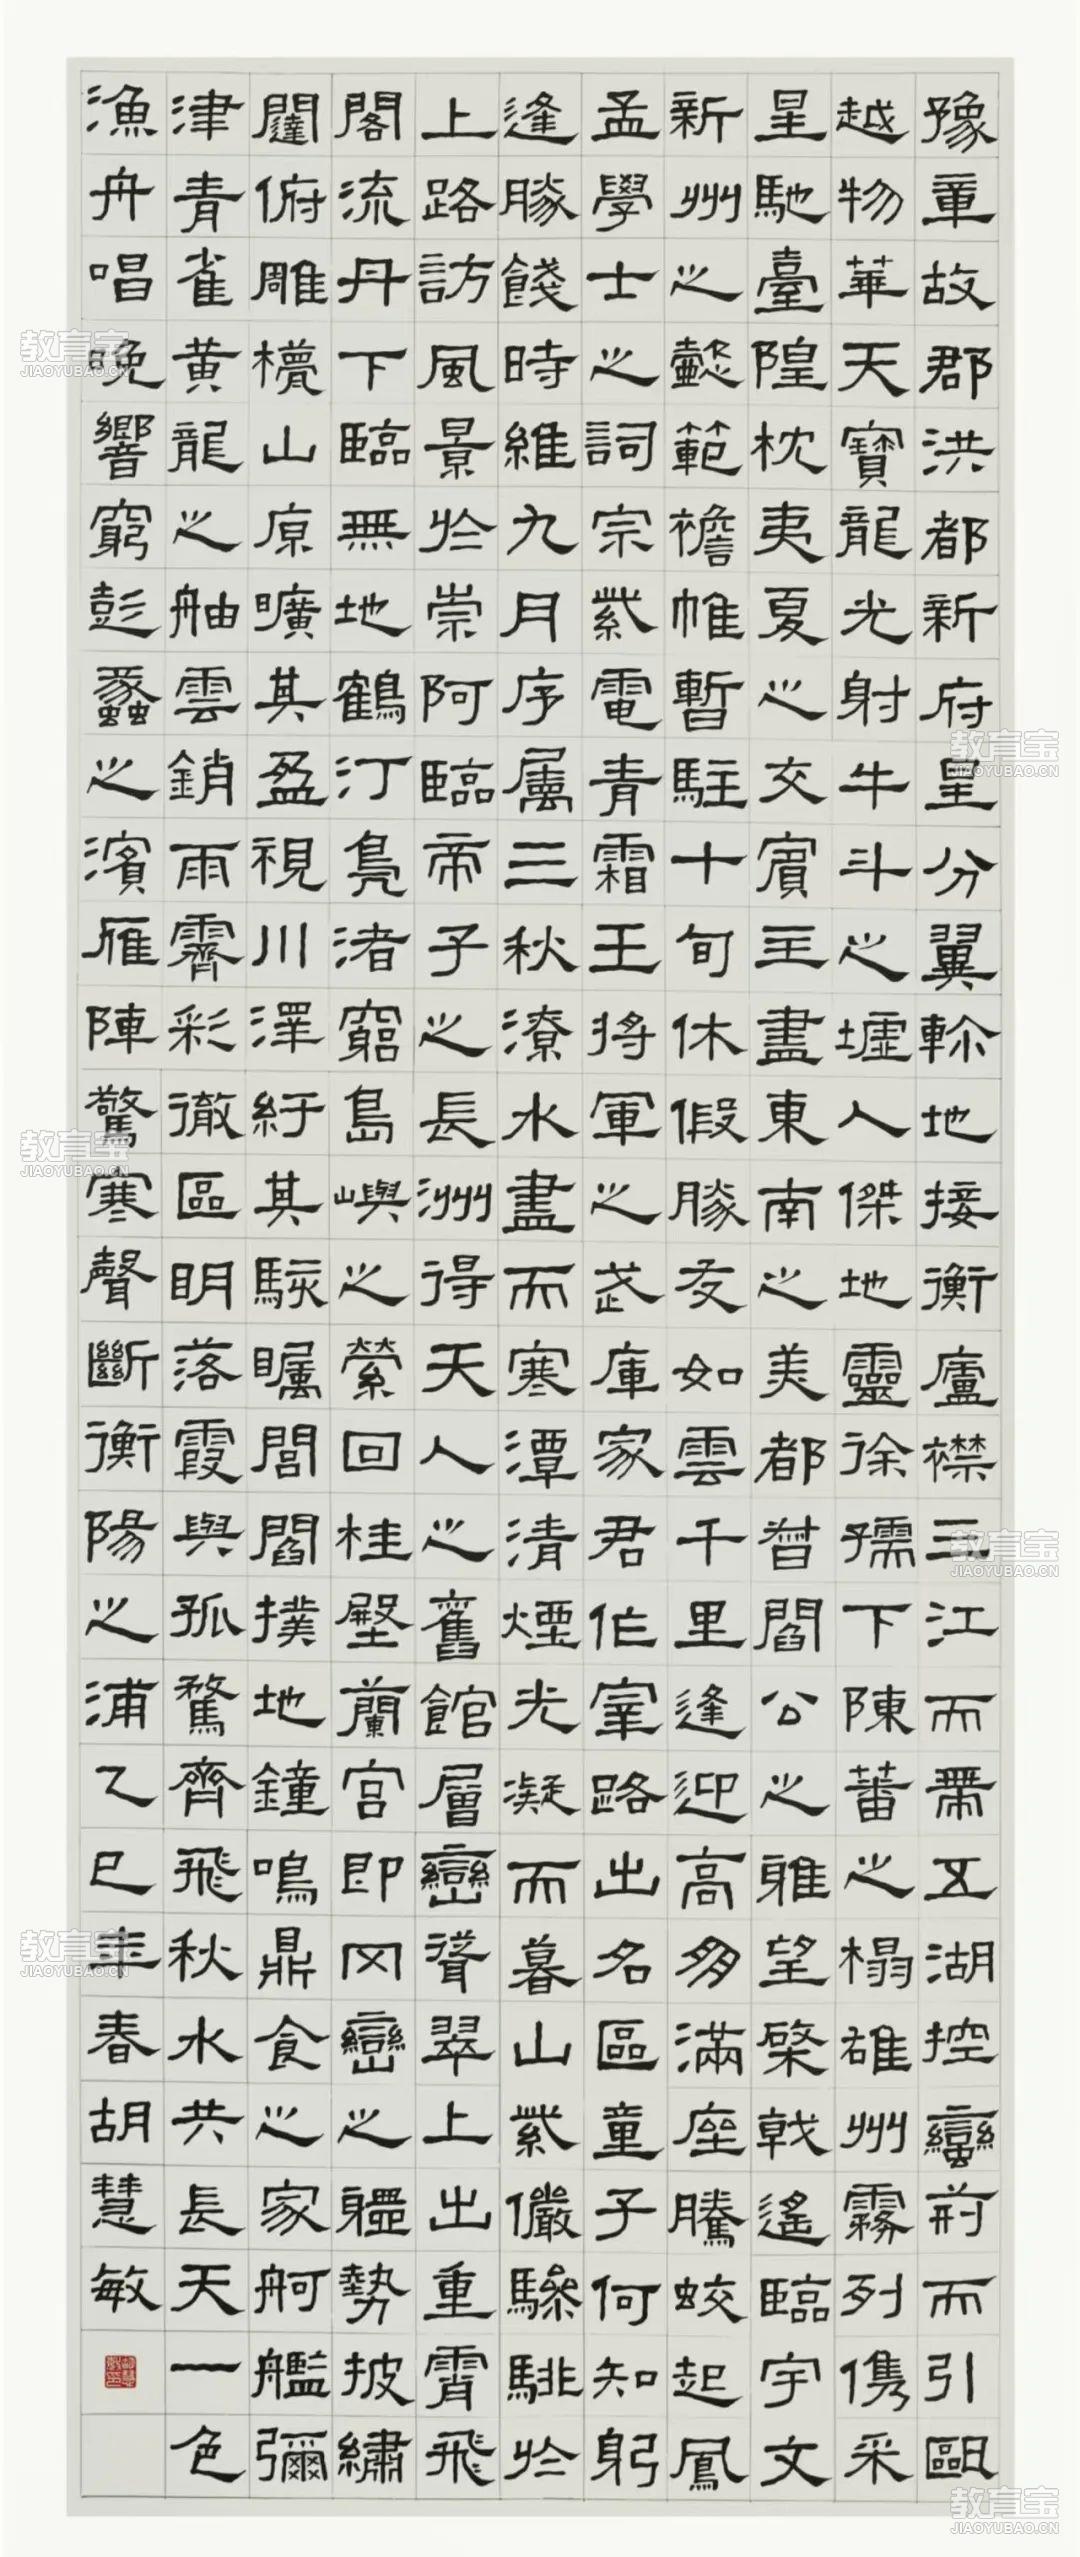 豫章故郡洪都新府星分翼軫地接衡廬襟三江而帶五湖控蠻荊而引甌
越物華天寶龍光射牛斗之墟人傑地靈徐孺下陳蕃之榻雄州霧列儁采
星馳臺隍枕夷夏之交賓主盡東南之美都督閻公之雅望棨戟遙臨宇文
新州之懿範襜帷暫駐十旬休假勝友如雲千里逢迎高朋滿座騰蛟起鳳
孟學士之詞宗紫電青霜王將軍之武庫家君作宰路出名區童子何知躬
逢勝餞時維九月序属三秋潦水盡而寒潭清煙光凝而暮山紫儼驂騑於
上路訪風景於崇阿臨帝子之長洲得天人之舊館層巒聳翠上出重霄飛
閣流丹下臨無地鶴汀鳧渚窮島嶼之縈回桂殿蘭宮即岡巒之體勢披繡
闥俯雕甍山原曠其盈視川澤紆其駭瞩閭閻撲地鐘鳴鼎食之家舸艦彌
津青雀黃龍之舳雲銷雨霽彩徹區明落霞與孤鶩齊飛秋水共長天一色
漁舟唱晚響窮彭蠡之濱雁陣驚寒聲斷衡陽之浦乙巳年春胡慧敏
教育宝
JIAOYUBAO.CN
教育宝
JIAOYUBAO.CN
教育宝
JIAOYUBAO.CN
教育宝
JIAOYUBAO.CN
教育宝
JIAOYUBAO.CN
教育宝
JIAOYUBAO.CN